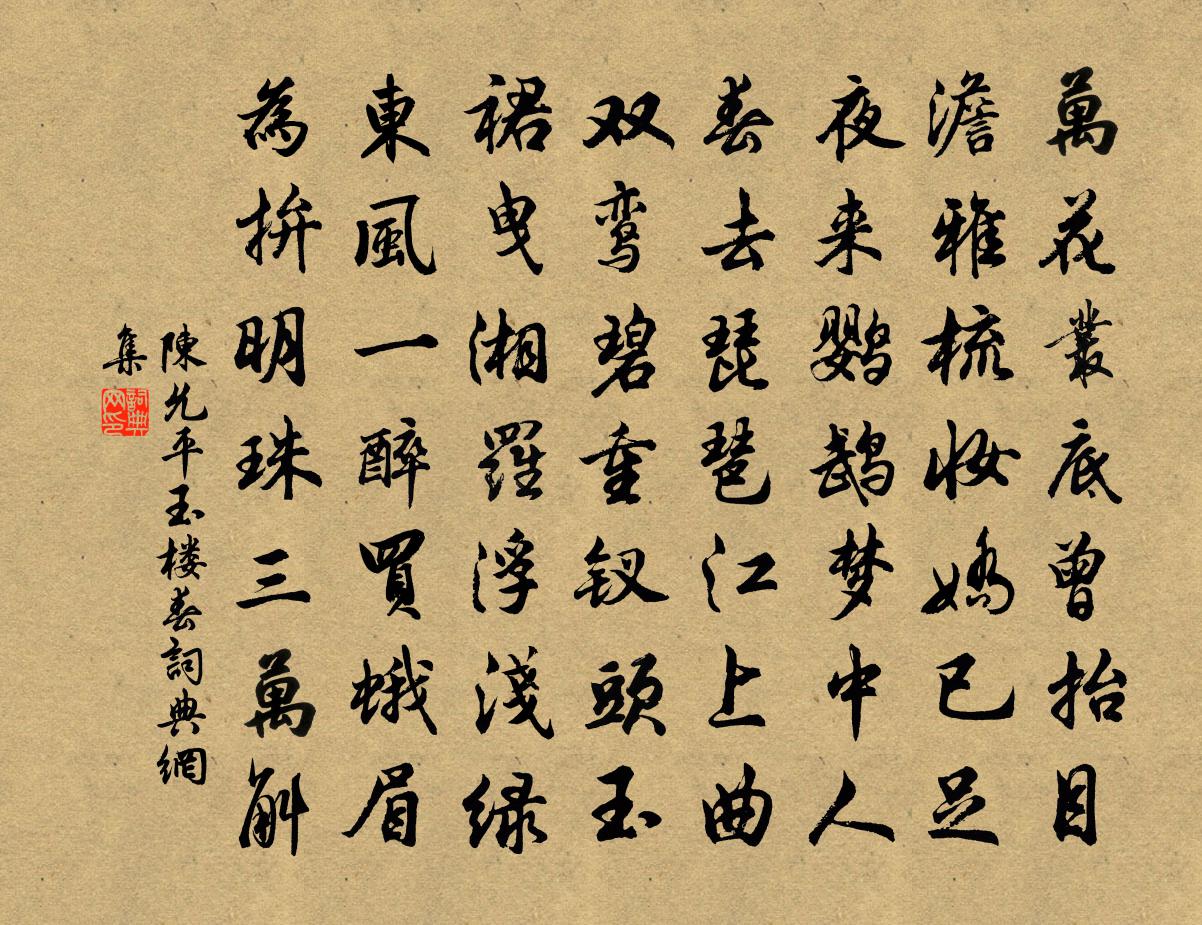 萬花叢底曾抬目
澹雅梳妆嬌已足
夜来鹦鹉梦中人
春去琵琶江上曲
双鸾碧重钗頭玉
裙曳湘羅浮淺绿
東風一醉買蛾眉
為拚明珠三萬斛
陳允平玉楼春詞典網
集
詞典网印